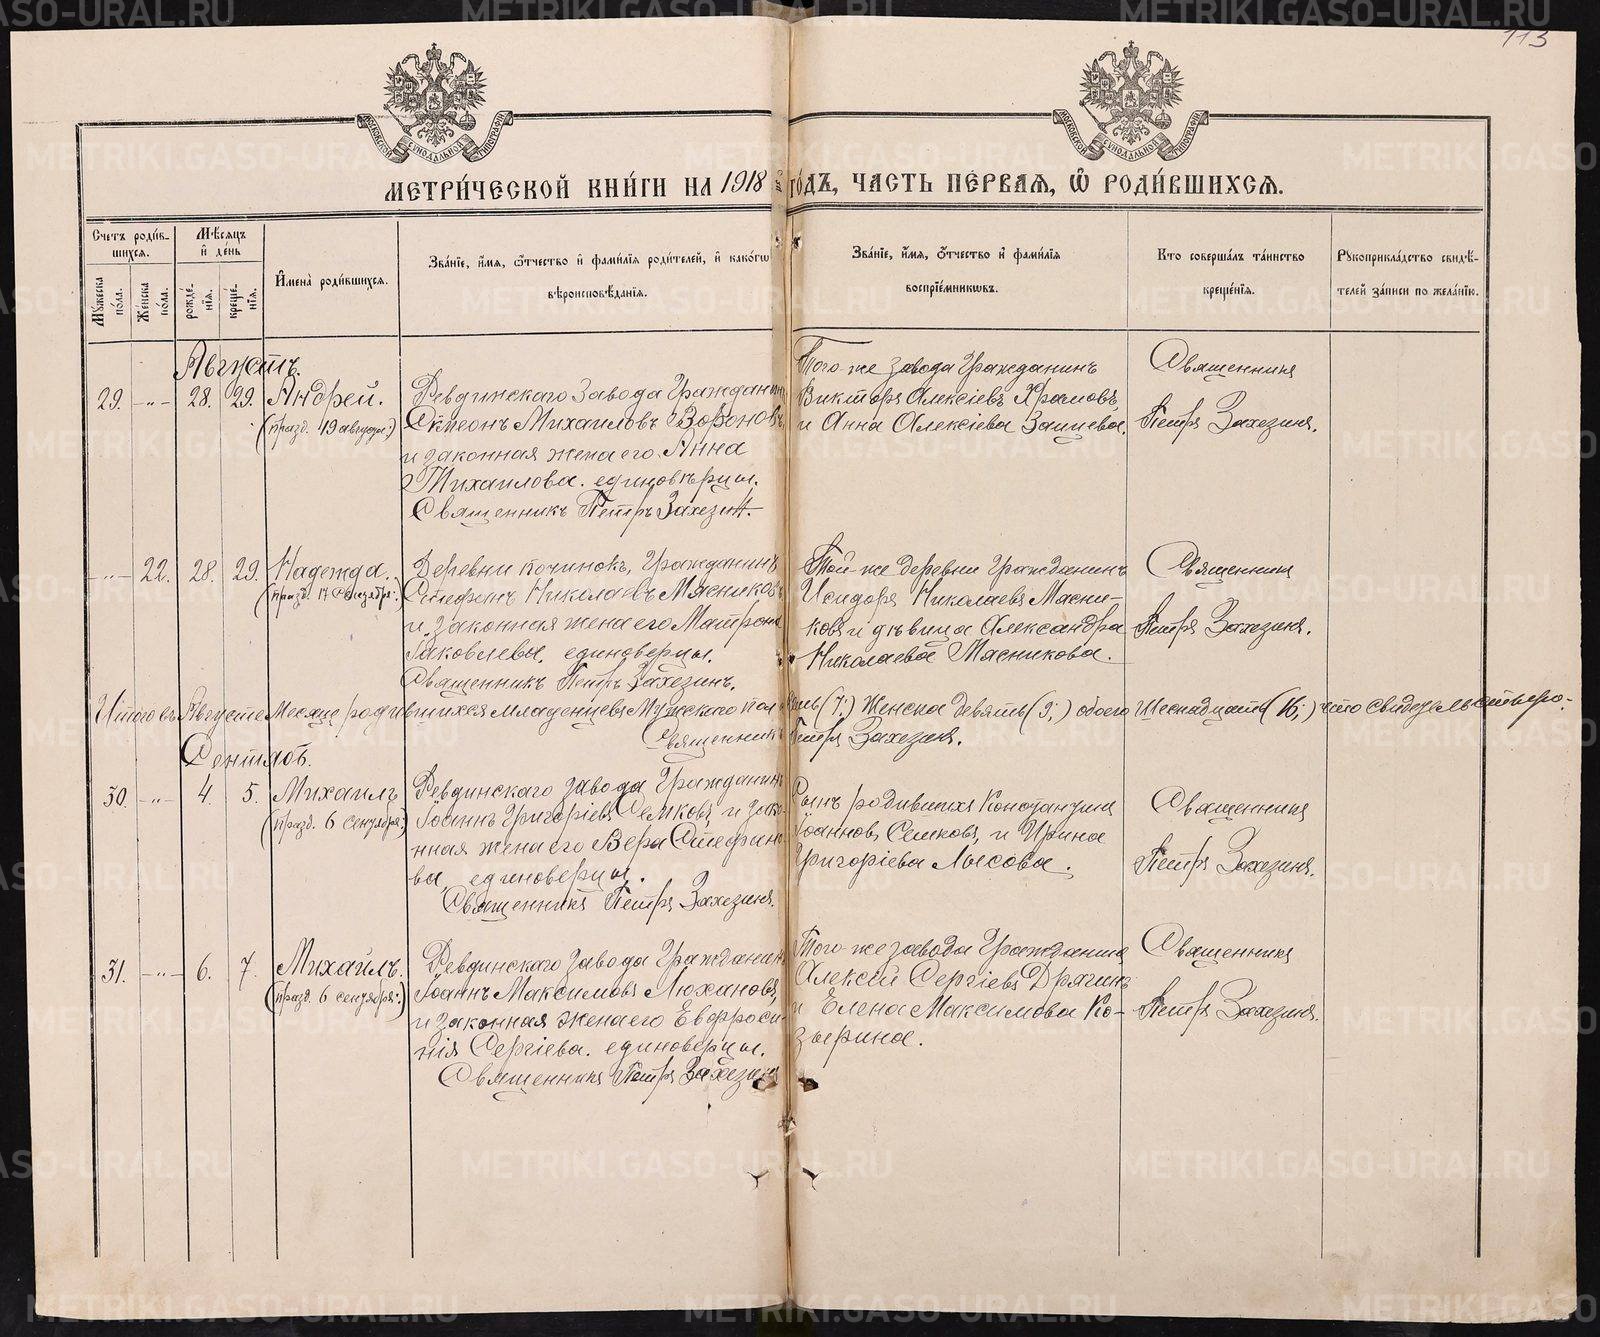 113
МОСКОВСКОЙ СѴНОДАЛЬНОЙ ТИПОГРАФІИ
МОСКОВСКОЙ СѴНОДАЛЬНОЙ ТИПОГРАФІИ
МЕТРИ́ЧЕСКОЙ КНИ́ГИ НА 1918 ГО́ДЪ, ЧАСТЬ ПЕ́РВАЯ, Ѡ҆ РОДИ́ВШИХСѦ.
Счетъ роди́в-
шихсѧ.
Мꙋжеска по́ла.
Же́нска по́ла.
Мѣ́сѧцъ
и҆ де́нь
рожде́-
нїѧ.
креще́-
нїѧ.
И҆мена̀ роди́вшихсѧ.
Зва́нїе, и҆́мѧ, ѻ҆́тчество и҆ фами́лїѧ роди́телей, и҆ како́гѡ
вѣроисповѣ́данїѧ.
Зва́нїе, и҆́мѧ, ѻ҆́тчество и҆ фами́лїѧ
воспрїе́мникѡвъ.
Кто̀ соверша́лъ та́инство
креще́нїѧ.
Рꙋкоприкла́дство свидѣ́-
телей за́писи по жела́нїю.
Августъ.
29. -„- 28. 29. Андрей.
(празд. 19 августа.)
Ревдинскаго Завода Гражданинъ
Симеонъ Михаиловъ Воронов
и законная жена его Анна
Михаилова. единовѣрцы.
Священникъ Петръ Захезин.
Того-же завода Гражданинъ
Викторъ Алексіевъ Храмовъ,
и Анна Алексіева Заицева.
Священникъ
Петръ Захезинъ.
-„- 22. 28. 29. Надежда.
(празд. 17 Сентября.)
Деревни починокъ, Гражданинъ
Стефанъ Николаевъ Мясниковъ
и законная жена его Матрона
Іаковлева. единоверцы.
Священникъ Петръ Захезинъ.
Той же деревни Гражданинъ
Исидоръ Николаевъ Мясни-
ковъ и дѣвица Александра
Николаева Мясникова.
Священникъ
Петръ Захезинъ.
Итого въ Августе Месяце родившихся младенцевъ Мужескаго пола семь (7.) Женска девять (9.) обоего Шеснадцать (16.) что свидетельствую.
Священникъ Петръ Захезинъ.
Сентяб.
30. -„- 4. 5. Михаилъ
(празд. 6 сентября.)
Ревдинскаго завода Гражданинъ
Іоаннъ Григоріевъ Семковъ, и зако-
нная жена его Вера Стефано-
ва, единоверцы.
Священникъ Петръ Захезинъ.
Сынъ родившихъ Констанѵіна
Іоанновъ Семковъ, и Ирина
Григоріева Лысова.
Священникъ
Петръ Захезинъ.
31. -„- 6. 7. Михаилъ.
(празд. 6 сентября.)
Ревдинскаго завода Гражданинъ
Іоаннъ Максимовъ Люхановъ,
и законная жена его Евфроси-
нія Сергіева. единоверцы.
Священникъ Петръ Захезинъ
Того-же завода Гражданинъ
Алексій Сергіевъ Дрягинъ
и Елена Максимова Ко-
зырина.
Священникъ
Петръ Захезинъ.
METRIKI.GASO-URAL.RU